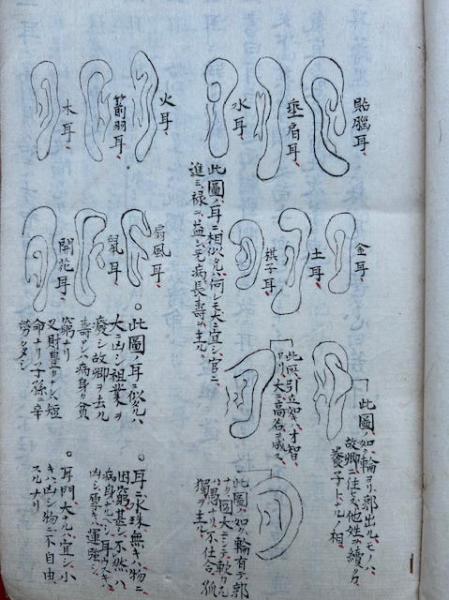 貼腦耳
垂肩耳
水耳
金耳
土耳
棋子耳
此圖ノ耳ニ相似タルハ何レモ大ニ宜シ官ニ
進ミ禄ニ益シ无病長壽ヲ主ル
此圖ノ如ク輪ヨリ郭出ルモノハ
故郷ニ住セズ他姓ヲ續ク又
養子トナルノ相
大ニ高名ヲ成ス
此圖ノ如ク輪有テ郭
火耳
箭羽耳
木耳
扇風耳
鼠耳
開花耳
○此圖ノ耳ニ似タルハ
大ニ凶シ祖業ヲ
癈シ故郷ヲ去ル
壽ナレハ病身カ貧
窮ナリ
又財豊ナレハ短
命ナリ子孫ニ辛
労多シ
○耳ニ水珠無キハ物ニ
困窮甚シ不然ハ
○耳門大ナルハ宜シ小
キハ凶シ物ニ不自由
スルナリ